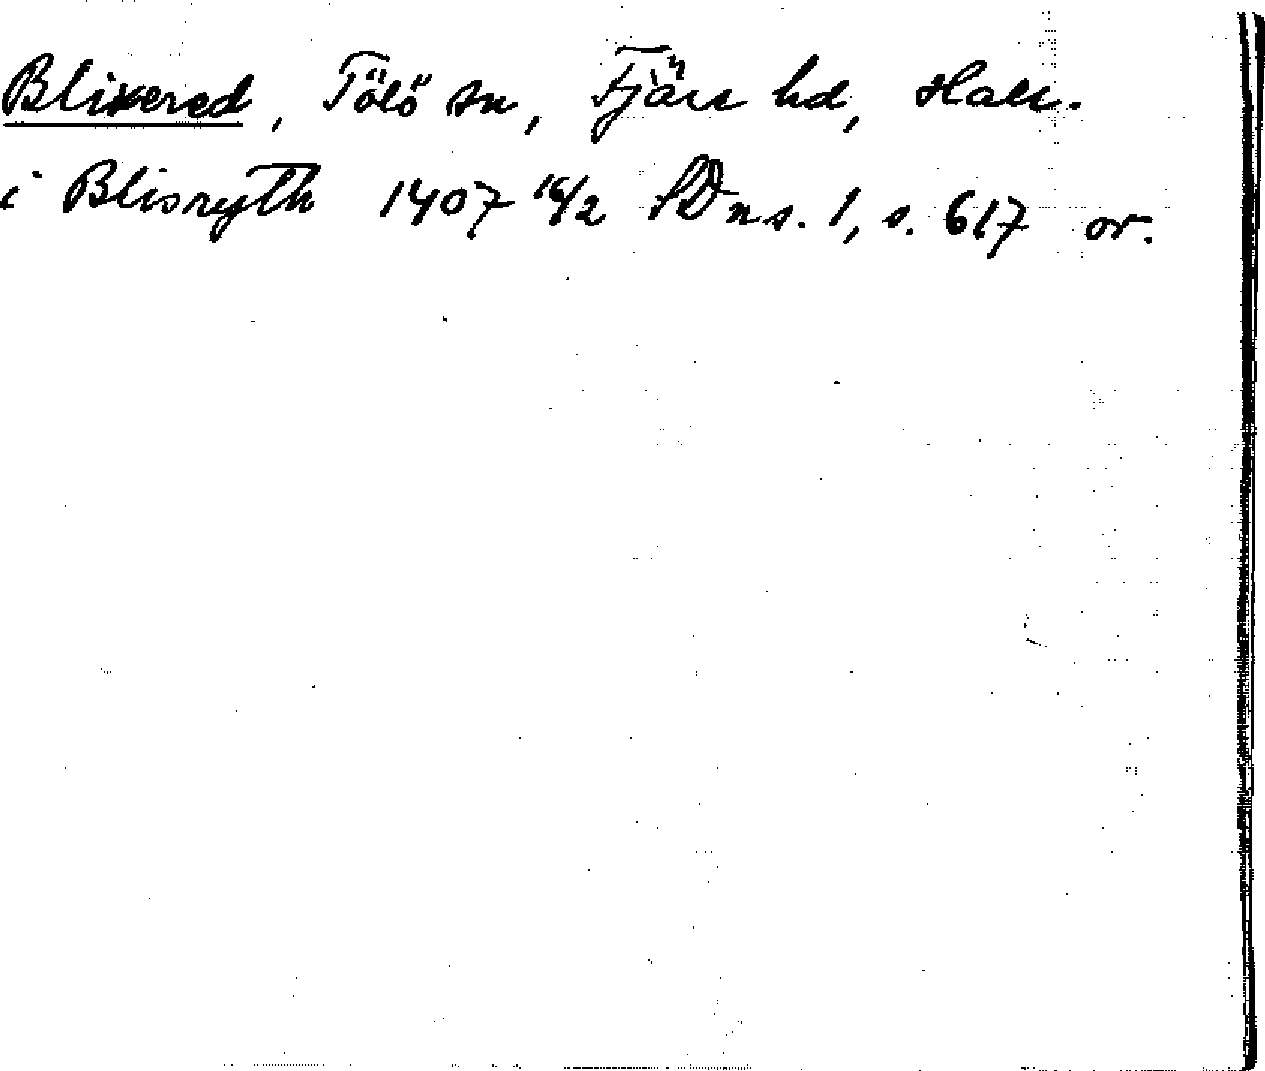 Blixered, Tölö sn, Fjäre hd, Hall.
i Blisryth 1407 16/2 SD ns. 1, s. 617 or.